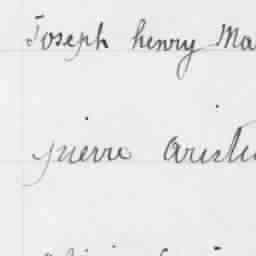 Joseph henry Ma
pierre aristi